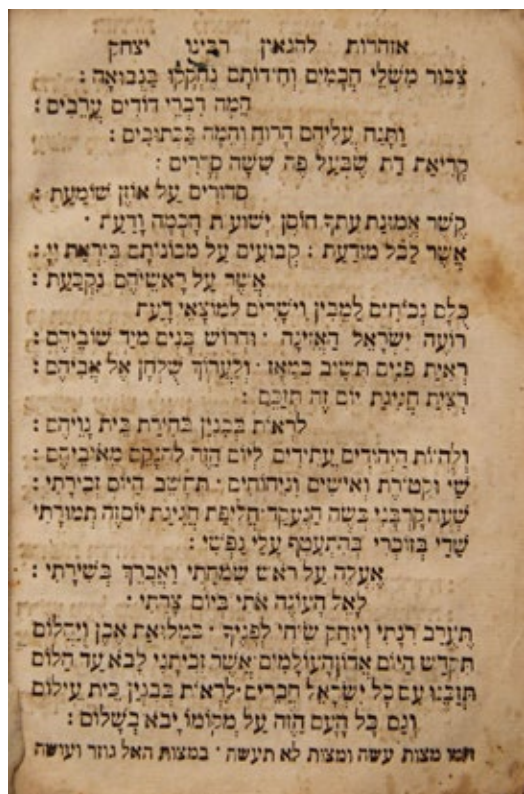 אזהרות להגאון רבינו יצחק
צבור משלי חכמים וחידותם נחקקו בנבואה :
המה דברי דודים ערבים :
ותנח עליהם הרוח והמה בכתובים :
קריאת דת שבעל פה ששה סדרים :
סדורים על אוזן שומעת :
קשר אמונת עתך חוסן ישועות חכמה ודעת ·
אשר לכל מודעת : קבועים על מכוניתם ביראת יי :
אשר על ראשיהם נקבעת :
כלם נכוחים למבין וישרים למוצאי דעת
רועה ישראל האזינה · ודרוש בנים מיד שוביהם :
ראית פנים תשיב כמאז · ולערוך שלחן אל אביהם :
רצית חגיגת יום זה תזכם :
לראות בבנין בחירת בית נויהם :
ולהיות היהודים עתידים ליום הזה להנקם מאויביהם :
שי וקטורת ואישים וניחוחים · תחשב היום זכירתי :
שעה קרבני כשה הנעקד חליפת חגיגת יום זה תמורתי
שדי בזוכרי בהתעטף עלי נפשי :
אעלה על ראש שמחתי ואברך בשירתי :
לאל העונה אתי ביום צרתי ·
תערב רנתי ויוחק שיחי לפניך · במלואת אבן ויהלום
תקדש היום אדון העולמים אשר זכיתני לבא עד הלום
תזכנו עם כל ישראל חברים לראות בבנין בית עילום
וגם כל העם הזה על מקומו יבא בשלום :
מצות עשה ומצות לא תעשה · במצות האל גוזר ועושה